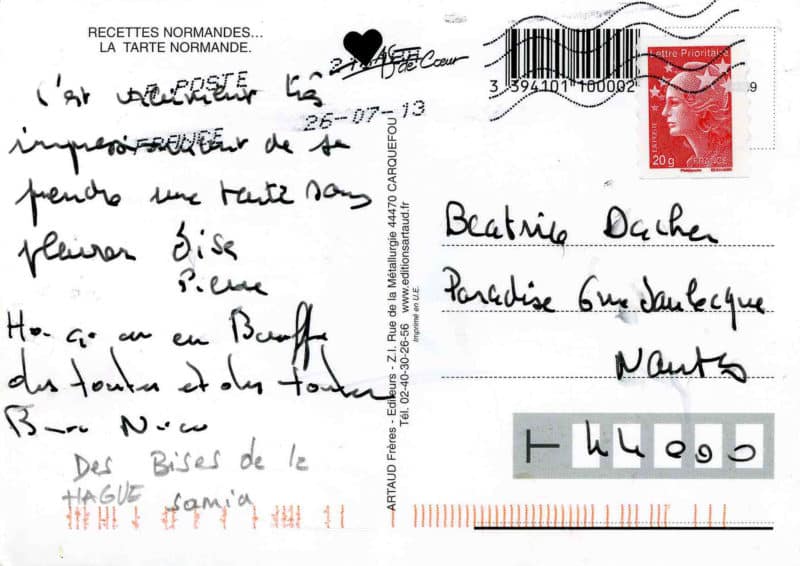 RECETTES NORMANDES...
LA TARTE NORMANDE.
LA POSTE
FRANCE
26-07-13
de Cœur
3 394101 100002
Lettre Prioritaire
20g
FRANCE
C'est vraiment très
impressionnant de se
prendre une tarte sans
pleurer Bise
Pierre
on en Bouffe
des toutes et des toutes
Nico
Des Bises de la
HAGUE Samia
ARTAUD Frères - Editeurs - Z.I. Rue de la Métallurgie 44470 CARQUEFOU
Tél. 02-40-30-26-56 www.editionsartaud.fr
Imprimé en U.E.
Beatrice Dacher
Paradise
Nantes
44000